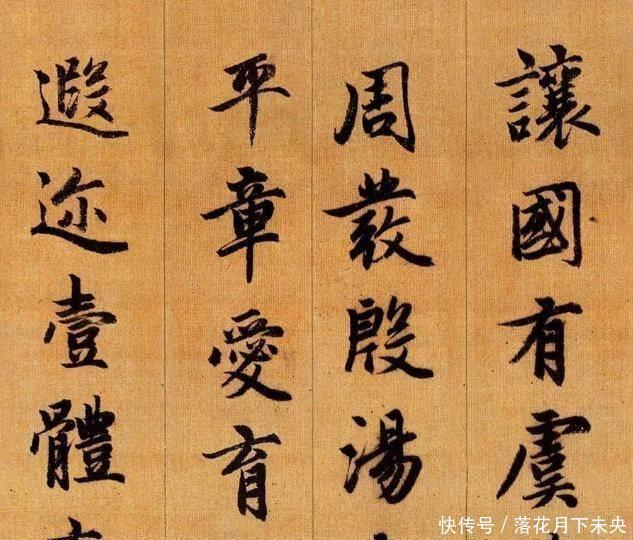 讓國有虞
周發殷湯
平章愛育
遐迩壹體
快传号／落花月下未央